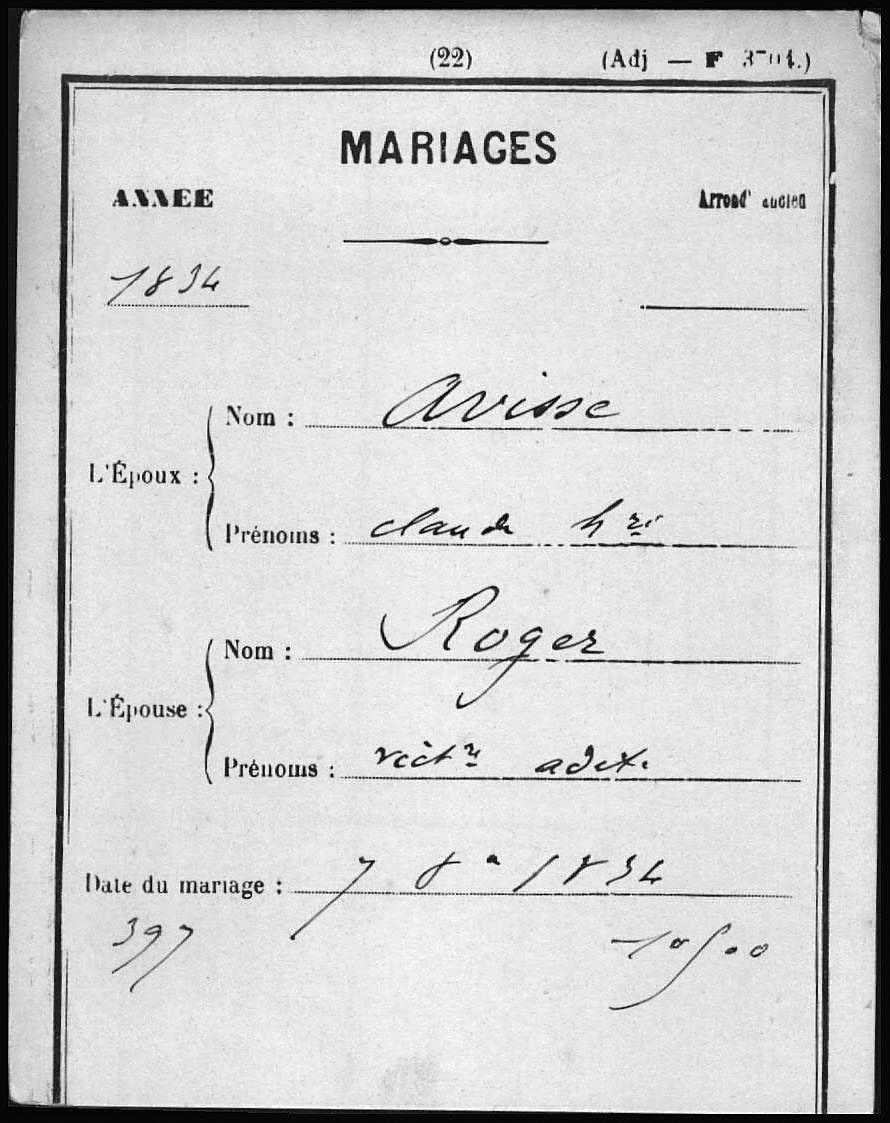 (22) (Adj — F
MARIAGES
ANNEE Arrondt ancien
1834
L'Époux :
Nom : Avisse
Prénoms : claude hri
L'Épouse :
Nom : Roger
Prénoms : victre
Date du mariage : 7 8e 1834
397 10500